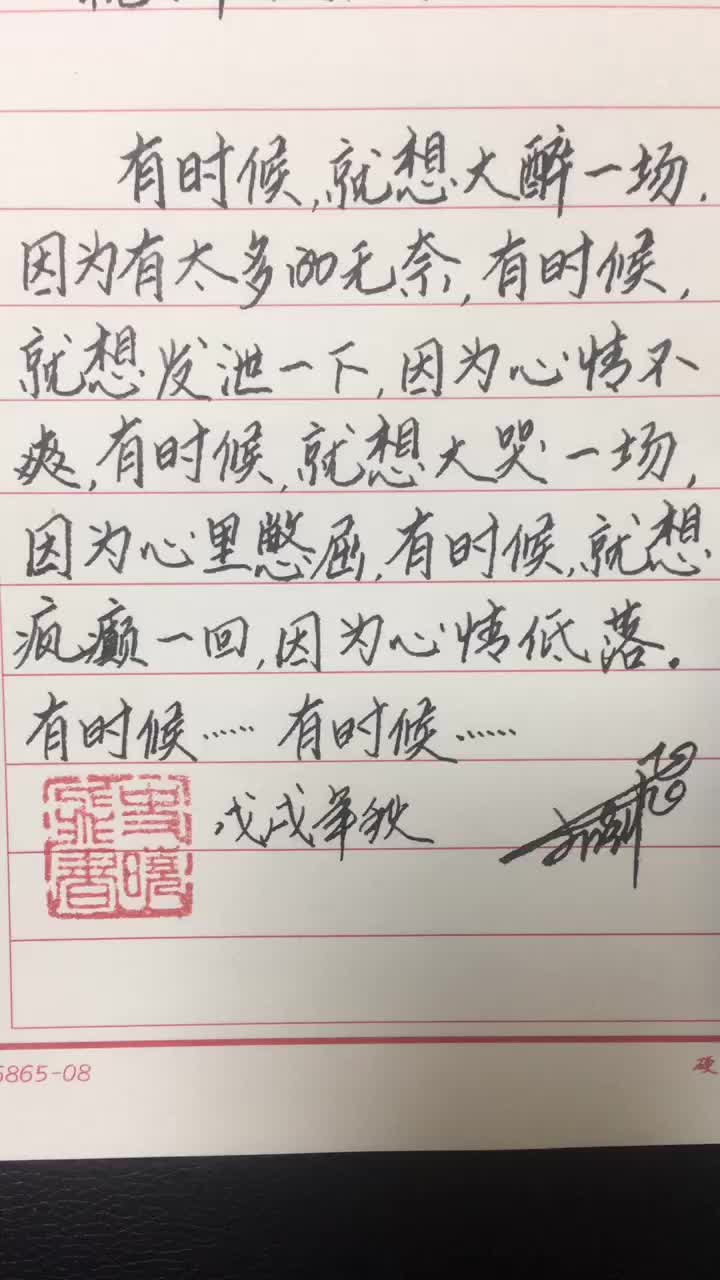 有时候,就想大醉一场.
因为有太多的无奈,有时候,
就想发泄一下,因为心情不
爽,有时候,就想大哭一场,
因为心里憋屈,有时候,就想
疯癫一回,因为心情低落。
有时候…… 有时候……
戊戌年秋
5865-08
硬